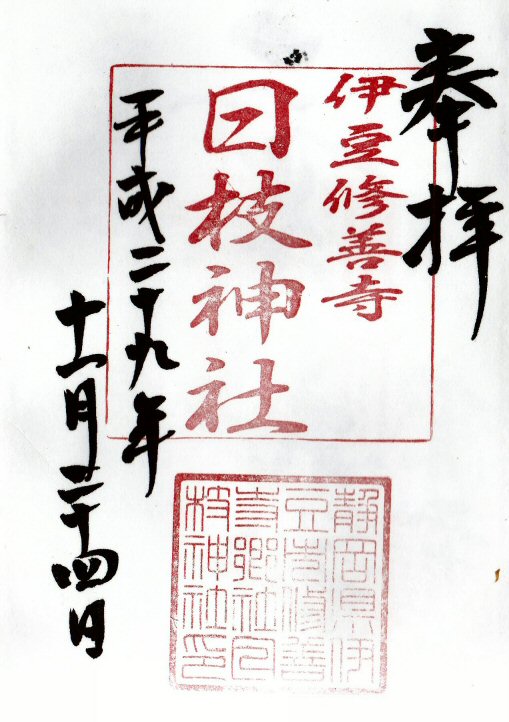 奉拝
伊豆修善寺
日枝神社
平成二十九年
十一月二十四日
静岡県伊
豆市修善
寺郷社日
枝神社印